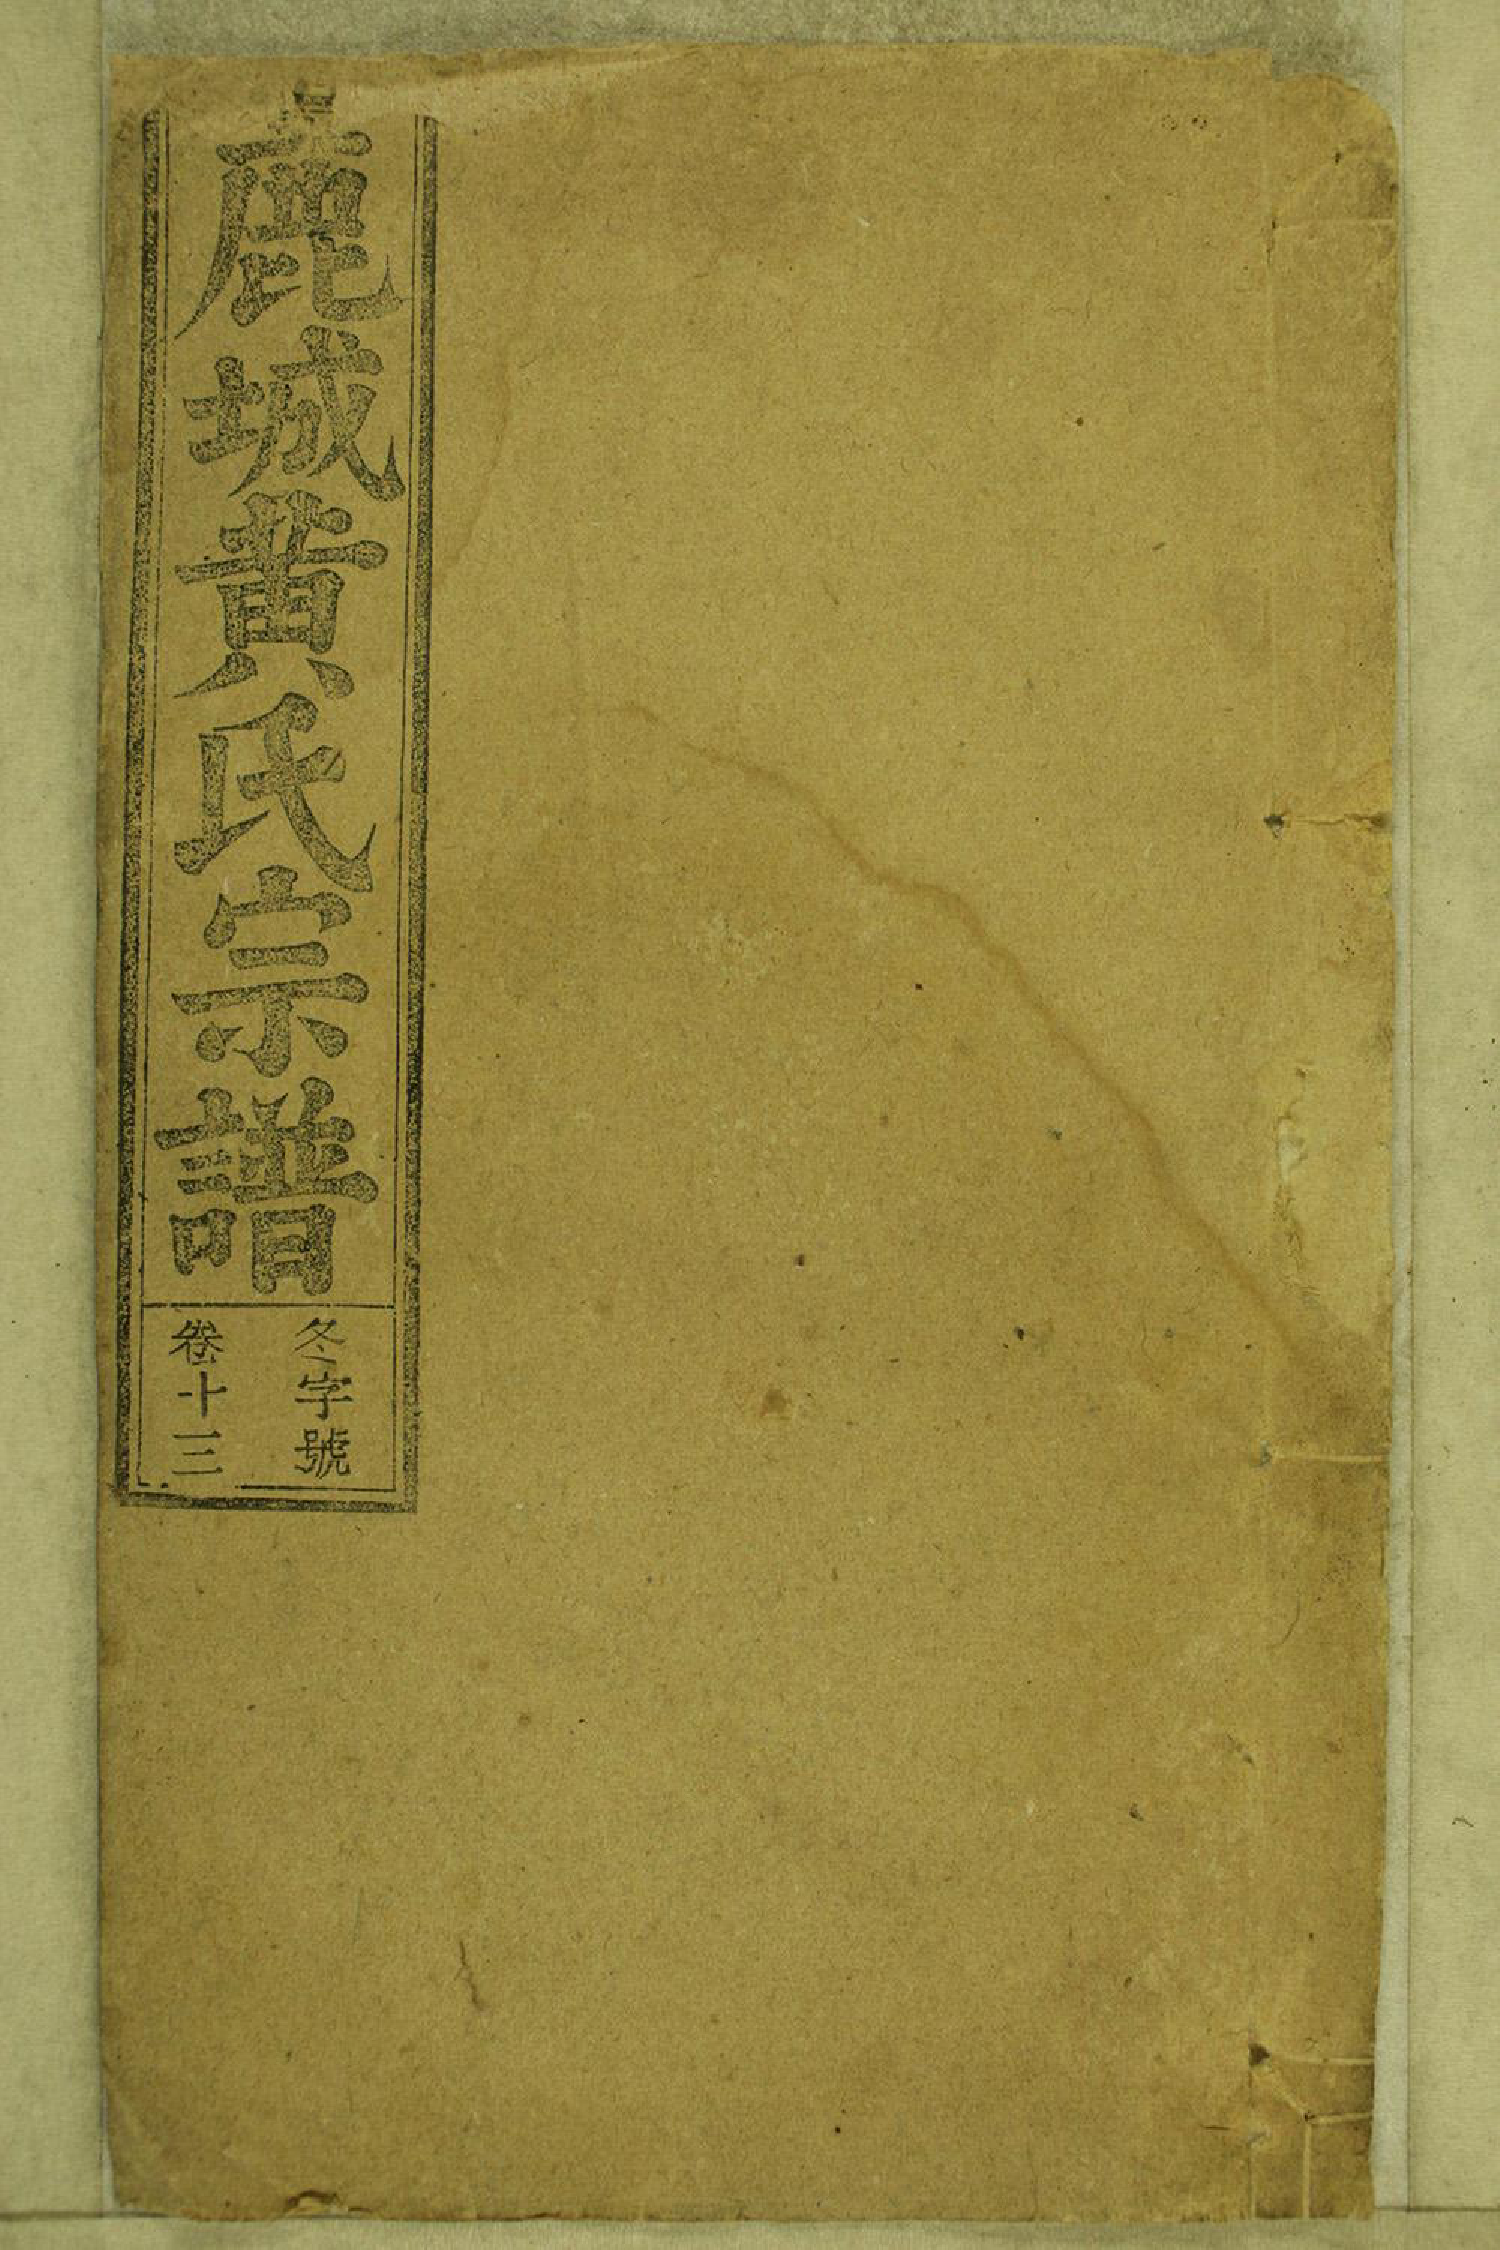 鹿城黃氏宗譜
冬字號
卷十三